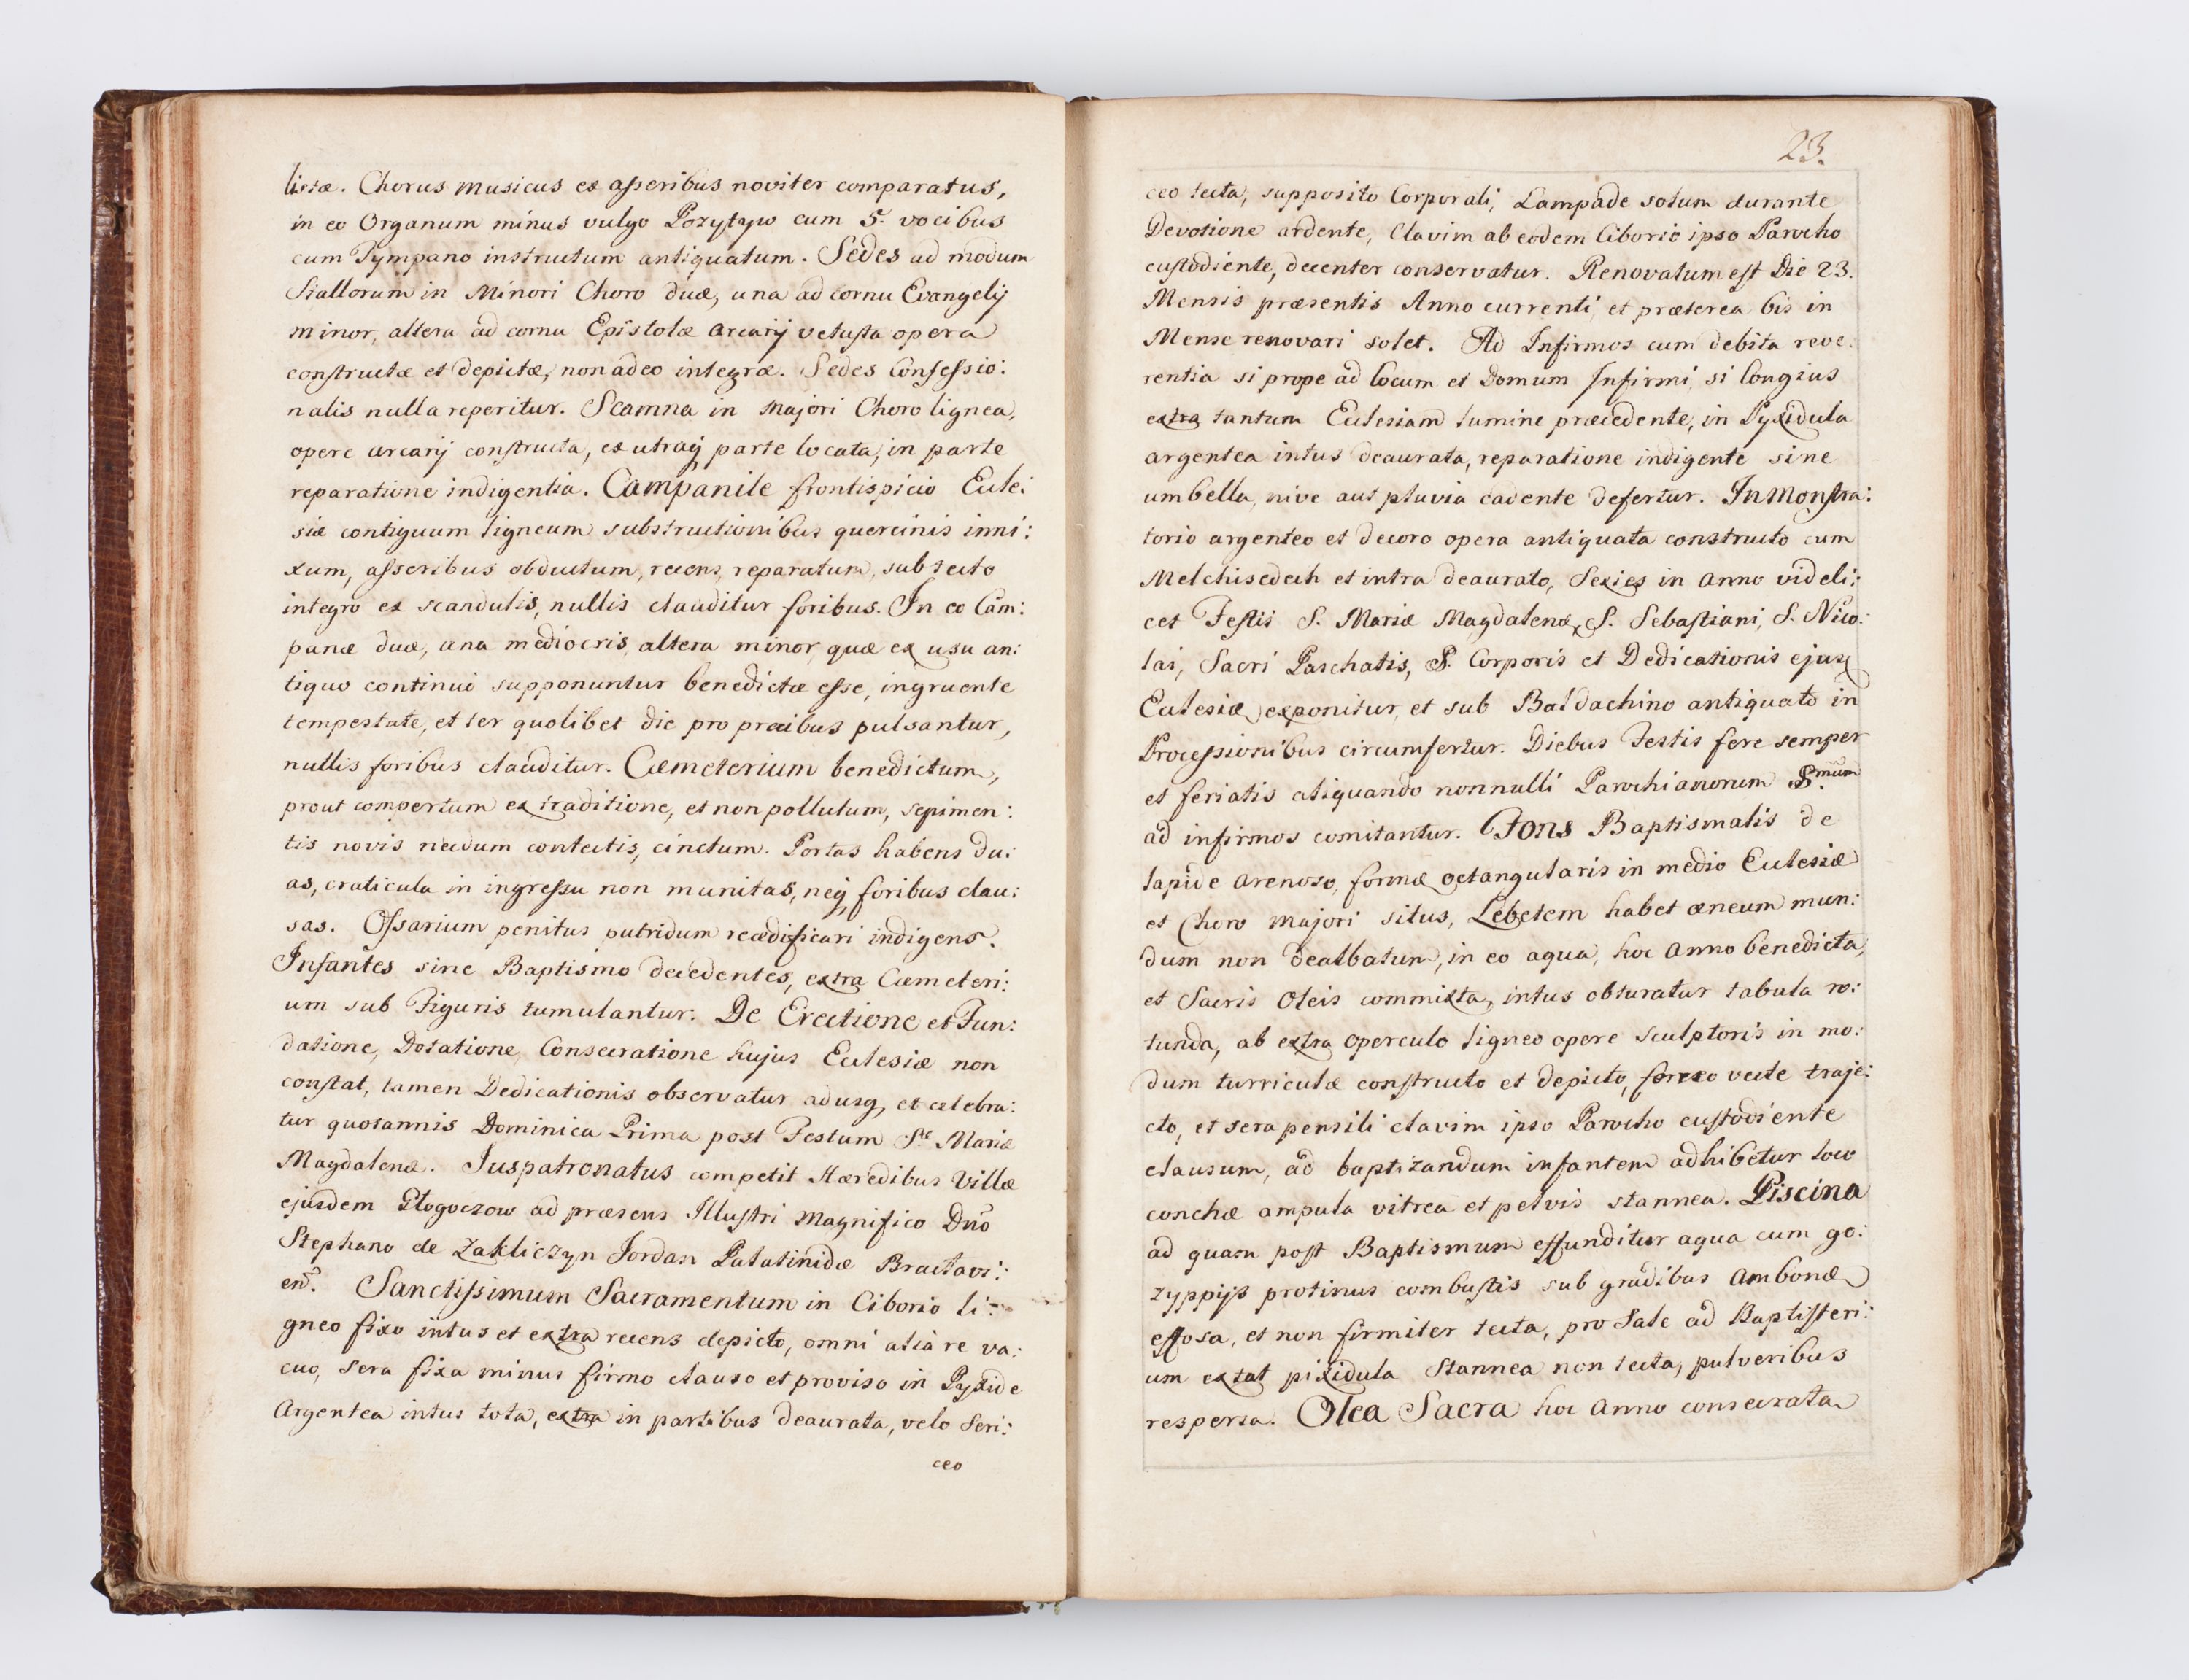 lictæ. Chorus Musicus ex asseribus noviter comparatus,
in eo Organum minus vulgo Pozytyw cum 5. vocibus
cum Tympano instructum antiquatum. Sedes ad modum
Stallorum in Minori Choro duæ, una ad cornu Evangelij
minor, altera ad cornu Epistolæ arcarij vetusta opera
constructæ et depictæ, non adeo integræ. Sedes Confessio:
nalis nulla reperitur. Scamna in Majori Choro lignea,
opere arcarij constructa, ex utraq parte locata, in parte
reparatione indigentia. Campanile frontispicio Eccle:
siæ contiguum ligneum substructionibus quercinis inni:
xum, asseribus obductum, recens reparatum, sub tecto
integro ex scandulis, nullis clauditur foribus. In eo Cam:
panæ duæ, una mediocris, altera minor, quæ ex usu an:
tiquo continuo supponuntur benedictæ esse, ingruente
tempestate, et ter quolibet die pro precibus pulsantur,
nullis foribus clauditur. Cæmeterium benedictum,
prout compertum ex traditione, et non pollutum, sepimen:
tis novis necdum contectis, cinctum. Portas habens du:
as, craticula in ingressu non munitas, neq foribus clau:
sas. Ossarium penitus putridum reædificari indigens.
Infantes sine Baptismo decedentes, extra Cæmeteri:
um sub Figuris tumulantur. De Erectione et Fun:
datione, Dotatione, Consecratione hujus Ecclesiæ non
constat, tamen Dedicationis observatur adusq, et celebra:
tur quotannis Dominica Prima post Festum Stæ Mariæ
Magdalenæ. Juspatronatus competit Hæredibus Villæ
ejusdem Głogoczow ad præsens Illustri Magnifico Dno
Stephano de Zakliczyn Jordan Palatinidæ Braclavi:
en. Sanctissimum Sacramentum in Ciborio li:
gneo fixo intus et extra recens depicto, omni alia re va:
cuo, sera fixa minus firmo clauso et proviso in Pyxide
Argentea intus tota, extra in partibus deaurata, velo Seri:
ceo
23.
ceo tecta, supposito Corporali, Lampade solum durante
Devotione ardente, Clavim ab eodem Ciborio ipso Parocho
custodiente, decenter conservatur. Renovatum est Die 23.
Mensis præsentis Anno currenti, et præterea bis in
Mense renovari solet. Ad Infirmos cum debita reve:
rentia si prope ad locum et Domum Infirmi, si longius
extra tantum Ecclesiam lumine præcedente, in Pyxidula
argentea intus deaurata, reparatione indigente sine
umbella, nive aut pluvia cadente defertur. In Monstra:
torio argenteo et decoro opera antiquata constructo cum
Melchisedech et intra deaurato, Sexies in Anno videli:
cet Festis S. Mariæ Magdalenæ, S. Sebastiani, S. Nico:
lai, Sacri Paschatis, S. Corporis et Dedicationis ejus
Ecclesiæ exponitur, et sub Baldachino antiquato in
Processionibus circumfertur. Diebus Festis fere semper
et feriatis aliquando nonnulli Parochianorum Smum
ad infirmos comitantur. Fons Baptismalis de
lapide arenoso, formæ octangularis in medio Ecclesiæ
et Choro Majori situs, Lebetem habet æneum mun:
dum non dealbatum, in eo aqua, hoc Anno benedicta,
et Sacris Oleis commixta, intus obturatur tabula ro:
tunda, ab extra operculo ligneo opere Sculptoris in mo:
dum turriculæ constructo et depicto, ferreo vecte traje:
cto, et sera pensili clavim ipso Parocho custodiente
clausum, ad baptizandum infantem adhibetur loco
conchæ ampula vitrea et pelvis stannea. Piscina
ad quam post Baptismum effunditur aqua cum go:
zyppijs protinus combustis sub gradibus Ambonæ
effosa, et non firmiter tecta, pro Sale ad Baptisteri:
um extat pixidula Stannea non tecta, pulveribus
respersa. Olea Sacra hoc Anno consecrata